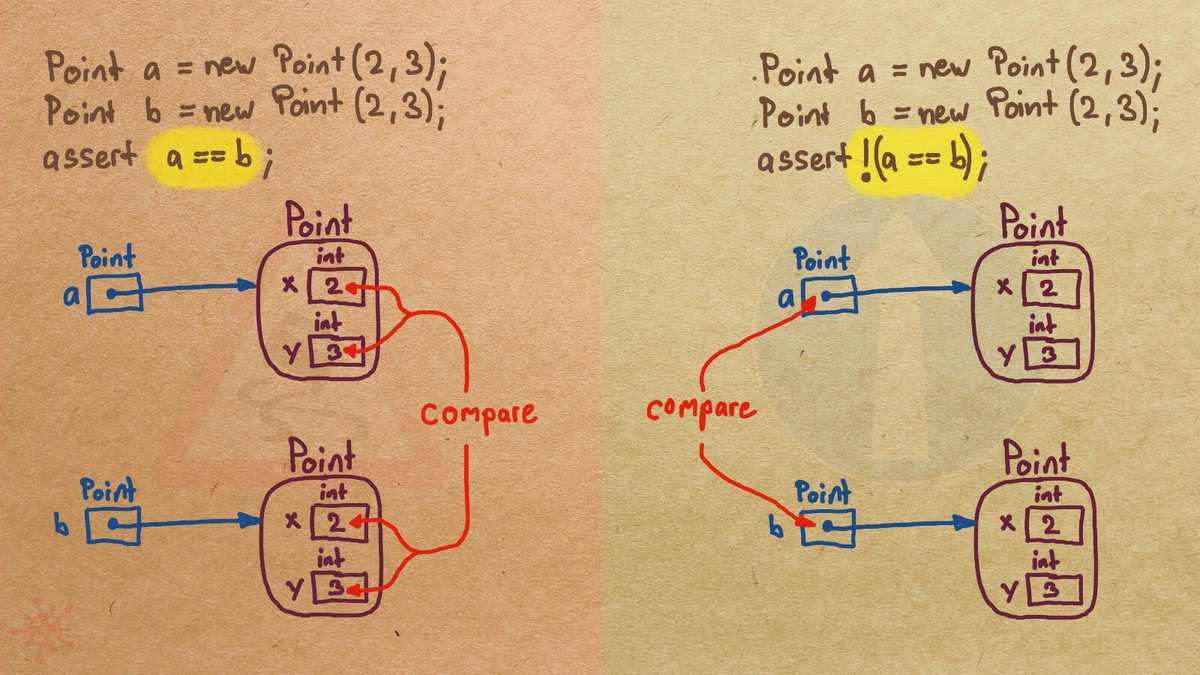 Point a = new Point (2, 3);
Point b = new Point (2, 3);
assert a == b ;
Point
Point
a
int
x 2
int
y 3
compare
Point
Point
b
int
x 2
int
y 3
Point a = new Point (2, 3);
Point b = new Point (2, 3);
assert !(a == b);
Point
Point
a
int
x 2
int
y 3
compare
Point
Point
b
int
x 2
int
y 3